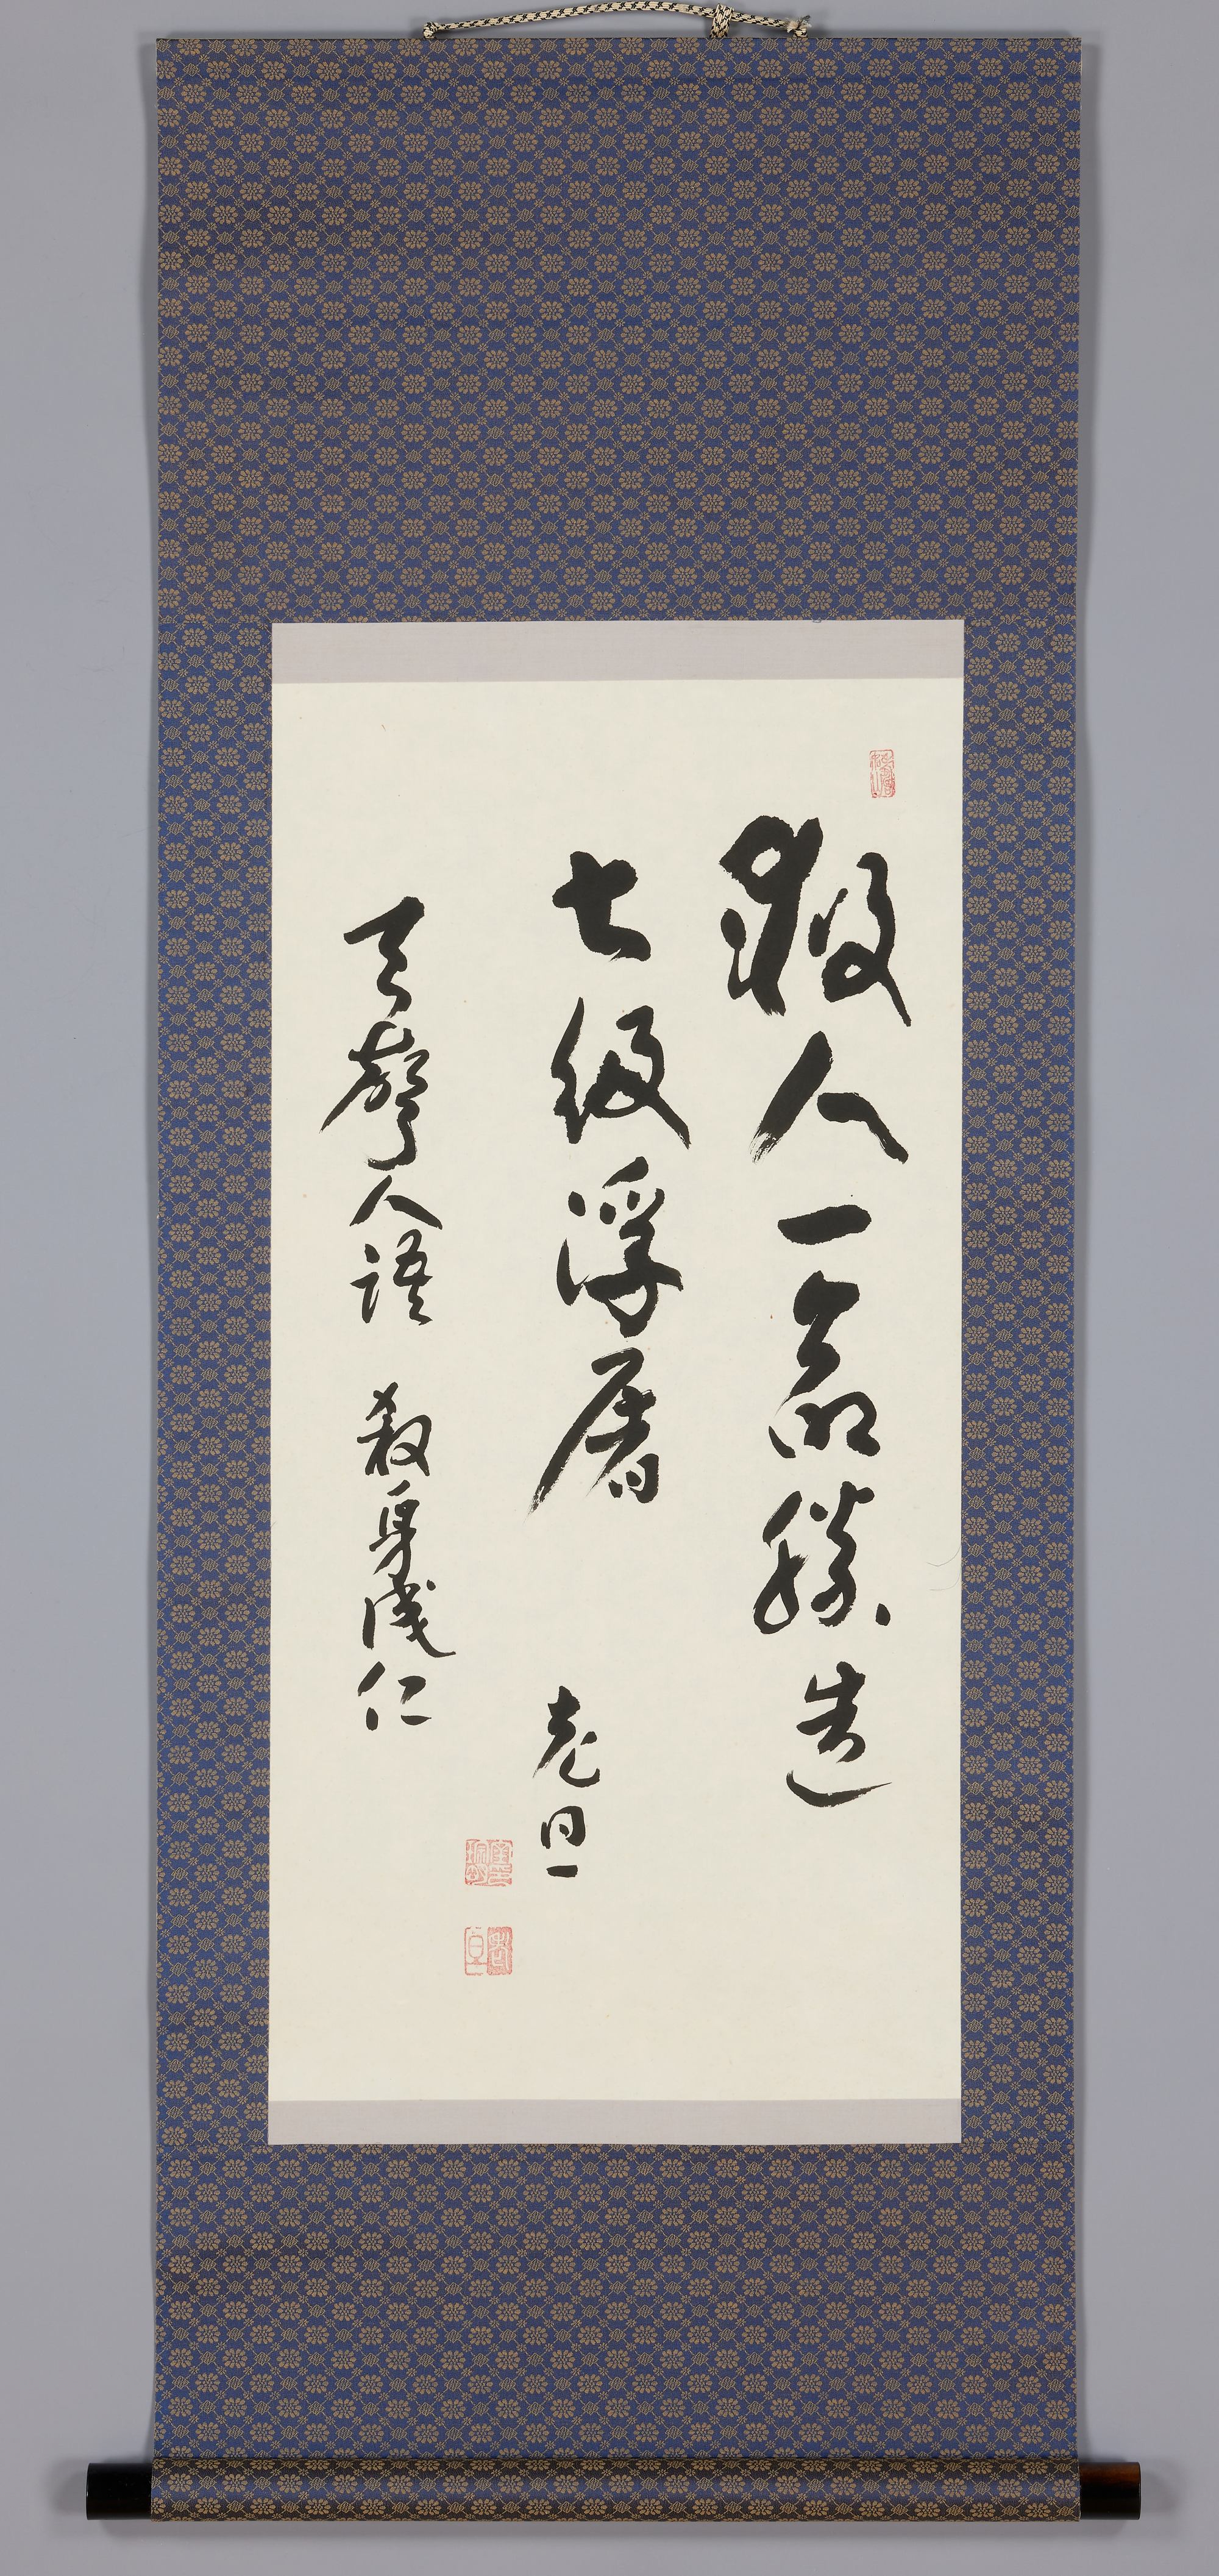 救人一命勝造
七級浮屠
老旦
天聲人語 殺身成仁